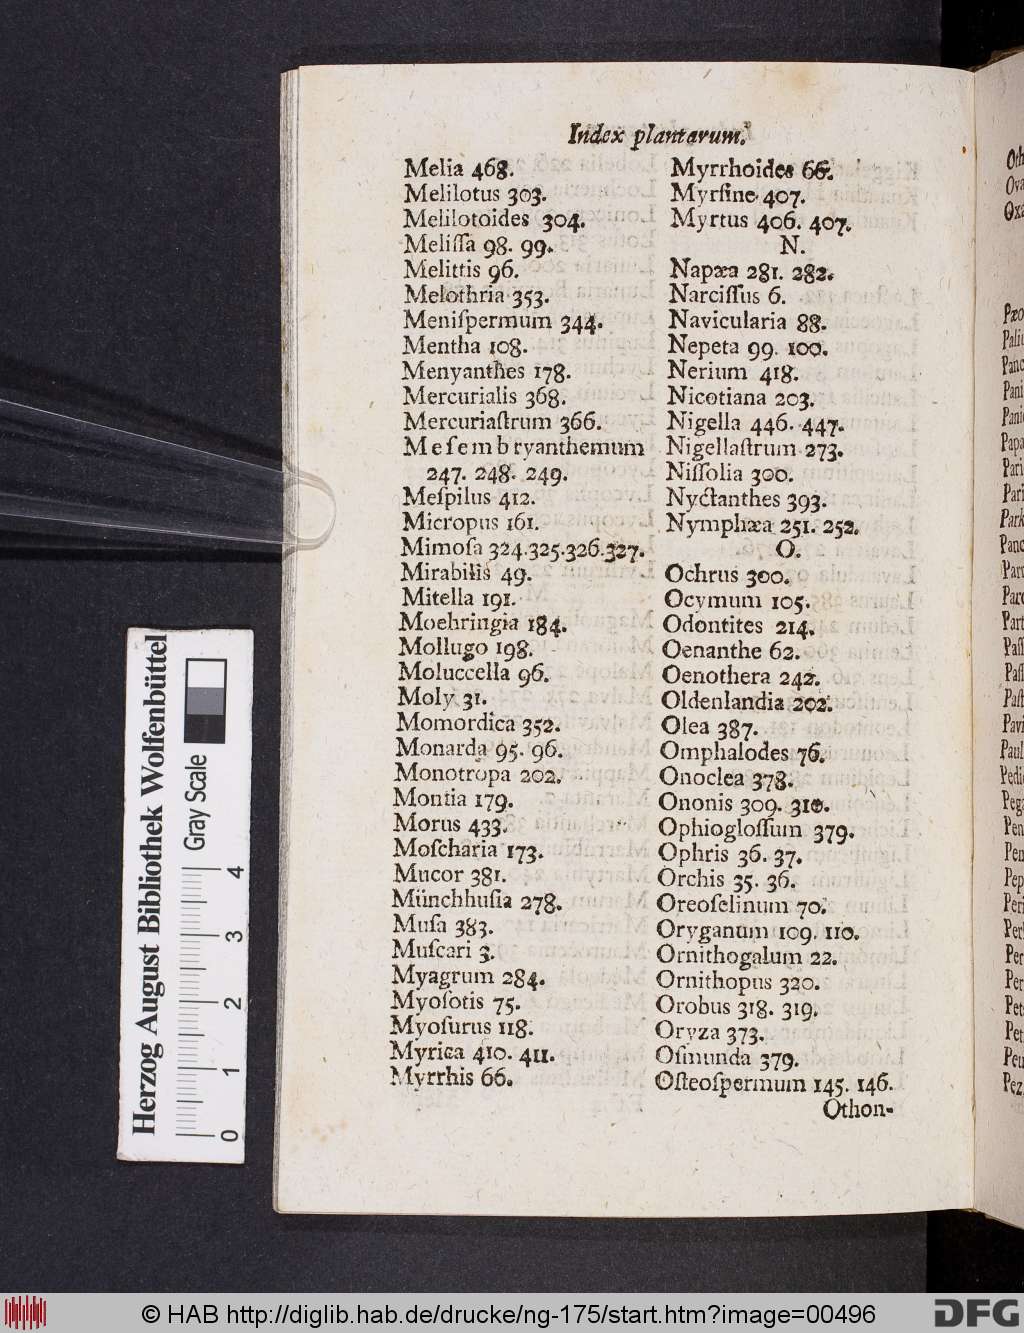 Index plantarum.
Melia 468.
Melilotus 303.
Melilotoides 304.
Meliſſa 98. 99.
Melittis 96.
Melothria 353.
Meniſpermum 344.
Mentha 108.
Menyanthes 178.
Mercurialis 368.
Mercuriaſtrum 366.
Meſembryanthemum
247. 248. 249.
Meſpilus 412.
Micropus 161.
Mimoſa 324.325.326.327.
Mirabilis 49.
Mitella 191.
Moehringia 184.
Mollugo 198.
Moluccella 96.
Moly 31.
Momordica 352.
Monarda 95. 96.
Monotropa 202.
Montia 179.
Morus 433.
Moſcharia 173.
Mucor 381.
Münchhuſia 278.
Muſa 383.
Muſcari 3.
Myagrum 284.
Myoſotis 75.
Myoſurus 118.
Myrica 410. 411.
Myrrhis 66.
Myrrhoides 66.
Myrſine 407.
Myrtus 406. 407.
N.
Napæa 281. 282.
Narciſſus 6.
Navicularia 88.
Nepeta 99. 100.
Nerium 418.
Nicotiana 203.
Nigella 446. 447.
Nigellaſtrum 273.
Niſſolia 300.
Nyctanthes 393.
Nymphæa 251. 252.
O.
Ochrus 300.
Ocymum 105.
Odontites 214.
Oenanthe 62.
Oenothera 242.
Oldenlandia 202.
Olea 387.
Omphalodes 76.
Onoclea 378.
Ononis 309. 310.
Ophiogloſſum 379.
Ophris 36. 37.
Orchis 35. 36.
Oreoſelinum 70.
Oryganum 109. 110.
Ornithogalum 22.
Ornithopus 320.
Orobus 318. 319.
Oryza 373.
Oſmunda 379.
Oſteoſpermum 145. 146.
Othon-
Herzog August Bibliothek Wolfenbüttel
Gray Scale
0 1 2 3 4
© HAB http://diglib.hab.de/drucke/ng-175/start.htm?image=00496
DFG